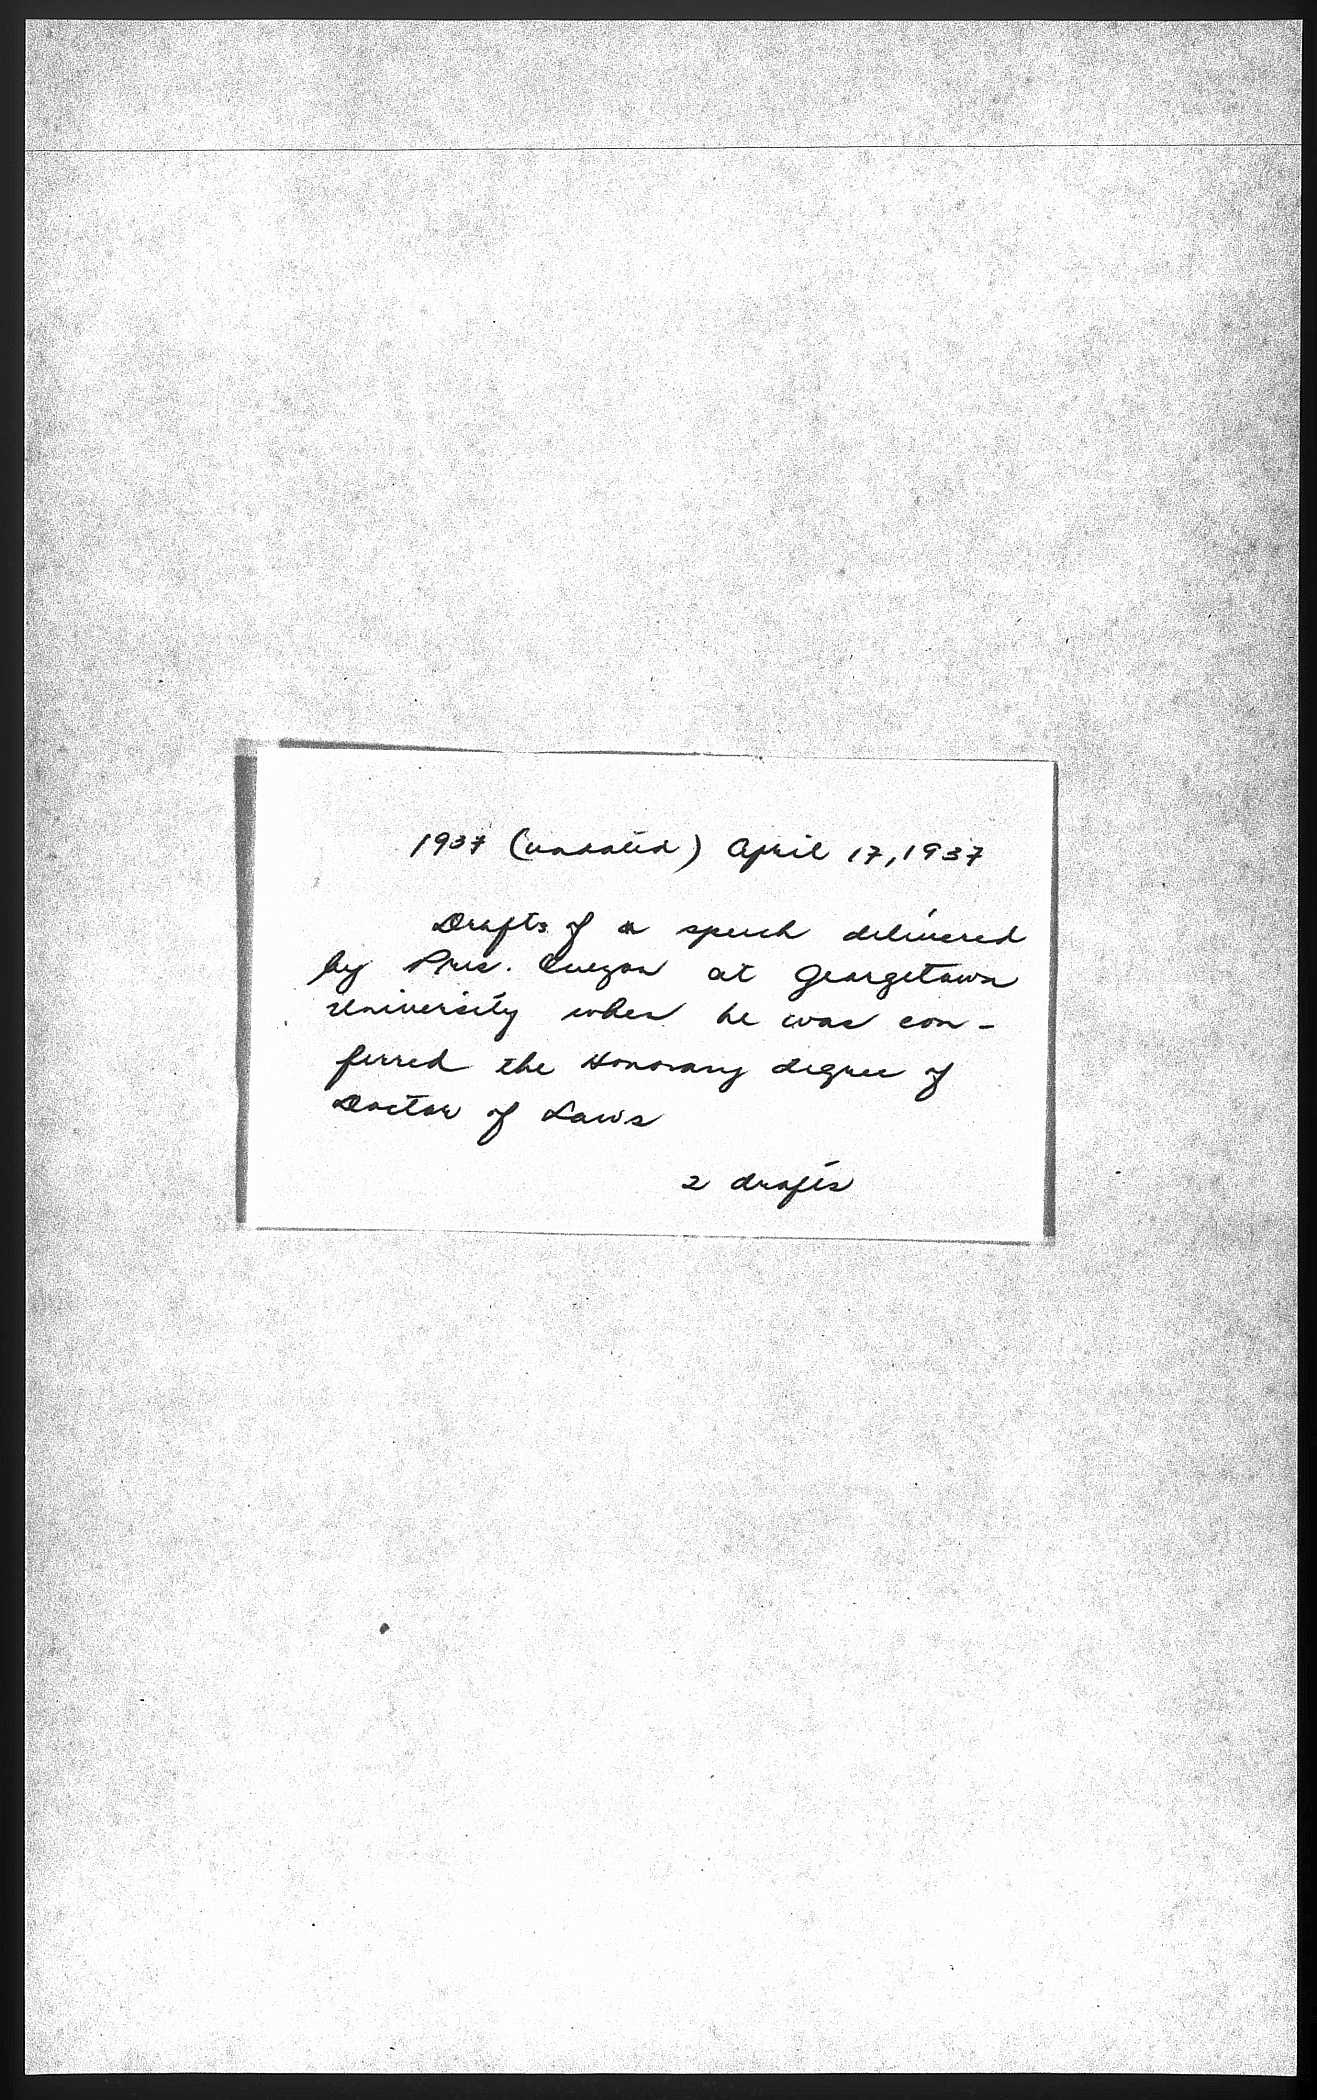 1937 (undated) April 17, 1937
Drafts of a speech delivered
by Pres. Quezon at Georgetown
University when he was con-
ferred the Honorary degree of
Doctor of Laws
2 drafts